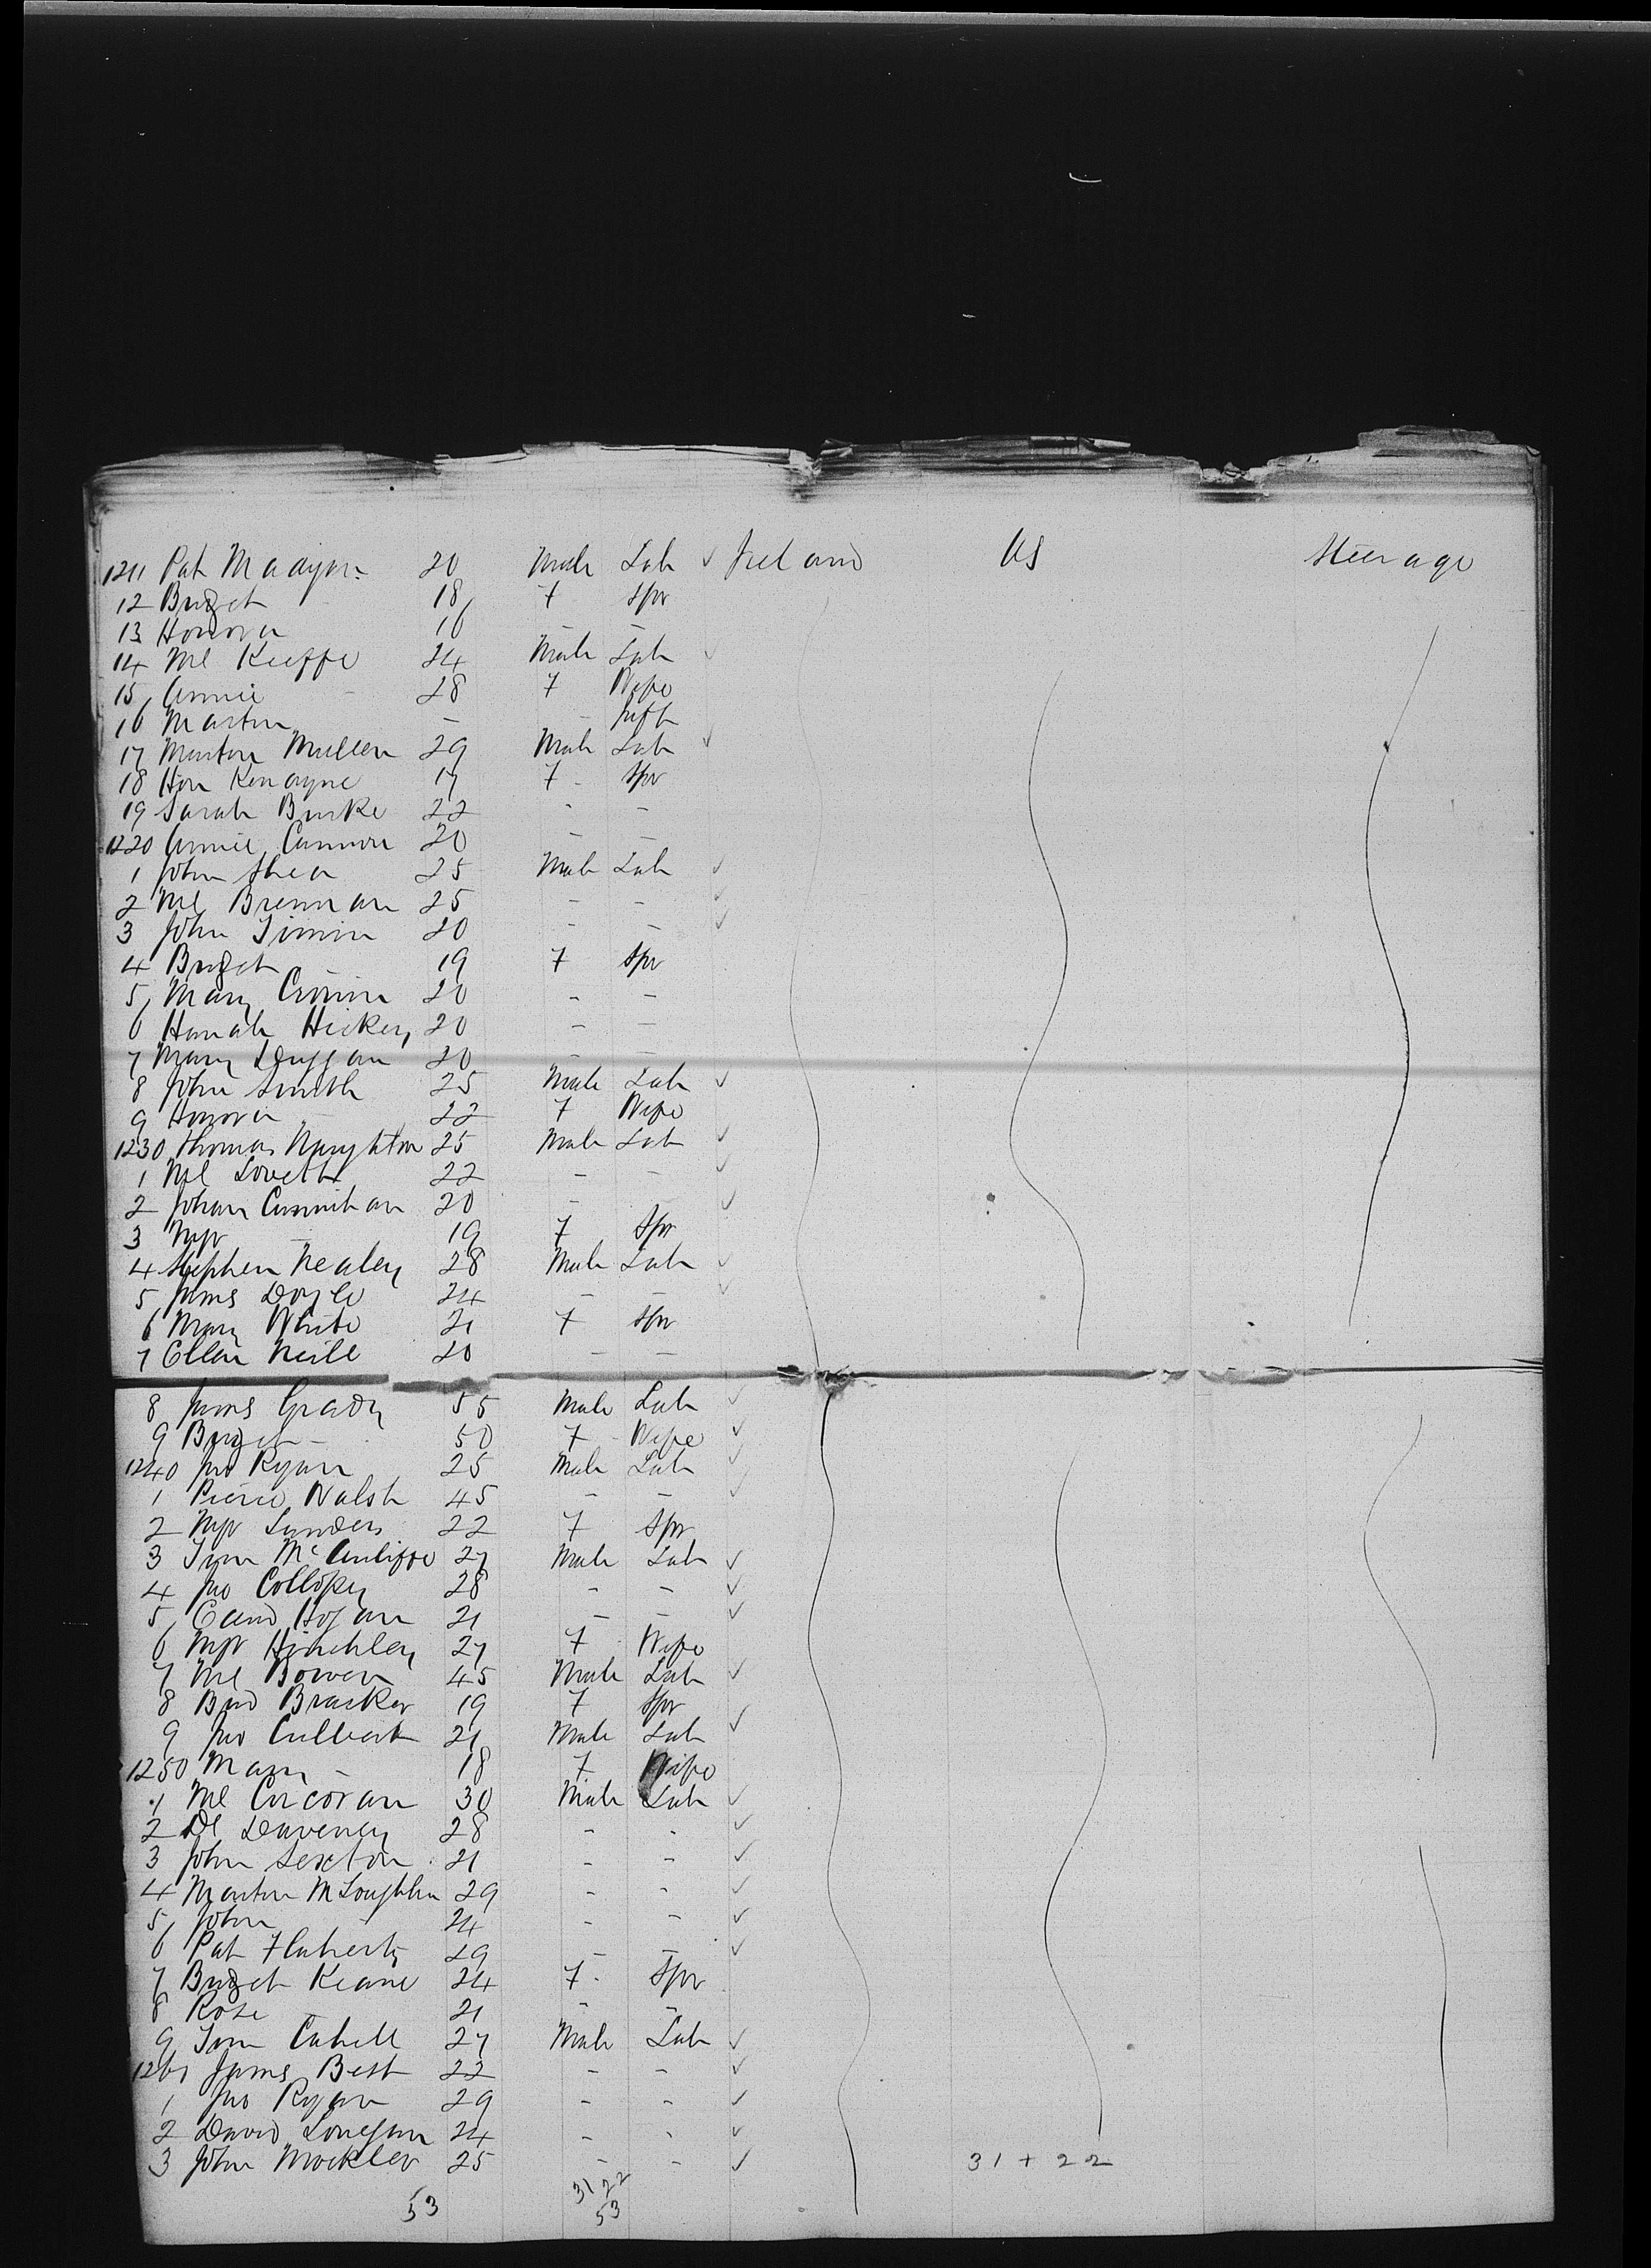 1211 Pat Madigan 20 Male Lab ✓ Ireland US Steerage
12 Bridget 18 F Spr
13 Honora 16 - -
14 Ml Keeffe 24 Male Lab ✓
15 Annie - 28 F Wife
16 Martin - - Inft
17 Martin Mullen 29 Male Lab ✓
18 Hon Kenayne 17 F Spr
19 Sarah Burke 22 - -
1220 Annie Cannon 20 - -
1 John Shea 25 Male Lab ✓
2 Ml Brennan 25 - - ✓
3 John Timin 20 - - ✓
4 Bridget - 19 F Spr
5 Mary Cronin 20 - -
6 Hanah Hickey 20 - -
7 Mary Duggan 20 - -
8 John Smith 25 Male Lab ✓
9 Honora - 22 F Wife
1230 Thomas Naughton 25 Male Lab ✓
1 Ml Lovett 22 - - ✓
2 Johan 20 - - ✓
3 Mgt - 19 F Spr
4 Stephen Nealey 28 Male Lab ✓
5 James Doyle 24 - - ✓
6 Mary White 21 F Spr
7 Ellen Neill 20 - -
8 James Grady 55 Male Lab ✓
9 Bridget - 50 F Wife ✓
1240 Jno Ryan 25 Male Lab ✓
1 Pierce Walsh 45 - - ✓
2 Mgt 22 F Spr
3 Tim McAuliffe 27 Male Lab ✓
4 Jno Collopy 28 - - ✓
5 Edmd Hogan 21 - - ✓
6 Mgt Hinchley 27 F Wife
7 Ml Bowen 45 Male Lab ✓
8 Brid Bracker 19 F Spr
9 Jno Culbert 21 Male Lab ✓
1250 Mary - 18 F Wife
1 Ml Corcoran 30 Male Lab ✓
2 Dl Daveney 28 - - ✓
3 John Sexton 21 - - ✓
4 Martin McLoughlin 29 - - ✓
5 John - 24 - - ✓
6 Pat Flaherty 29 - - ✓
7 Bridget Keane 24 F Spr
8 Rose - 21 - -
9 Tom Cahill 27 Male Lab ✓
1260 James Best 22 - - ✓
1 Jno Ryan 29 - - ✓
2 David Lonegan 24 - - ✓
3 John Mockler 25 - - ✓ 31 + 22
53 31 22
53